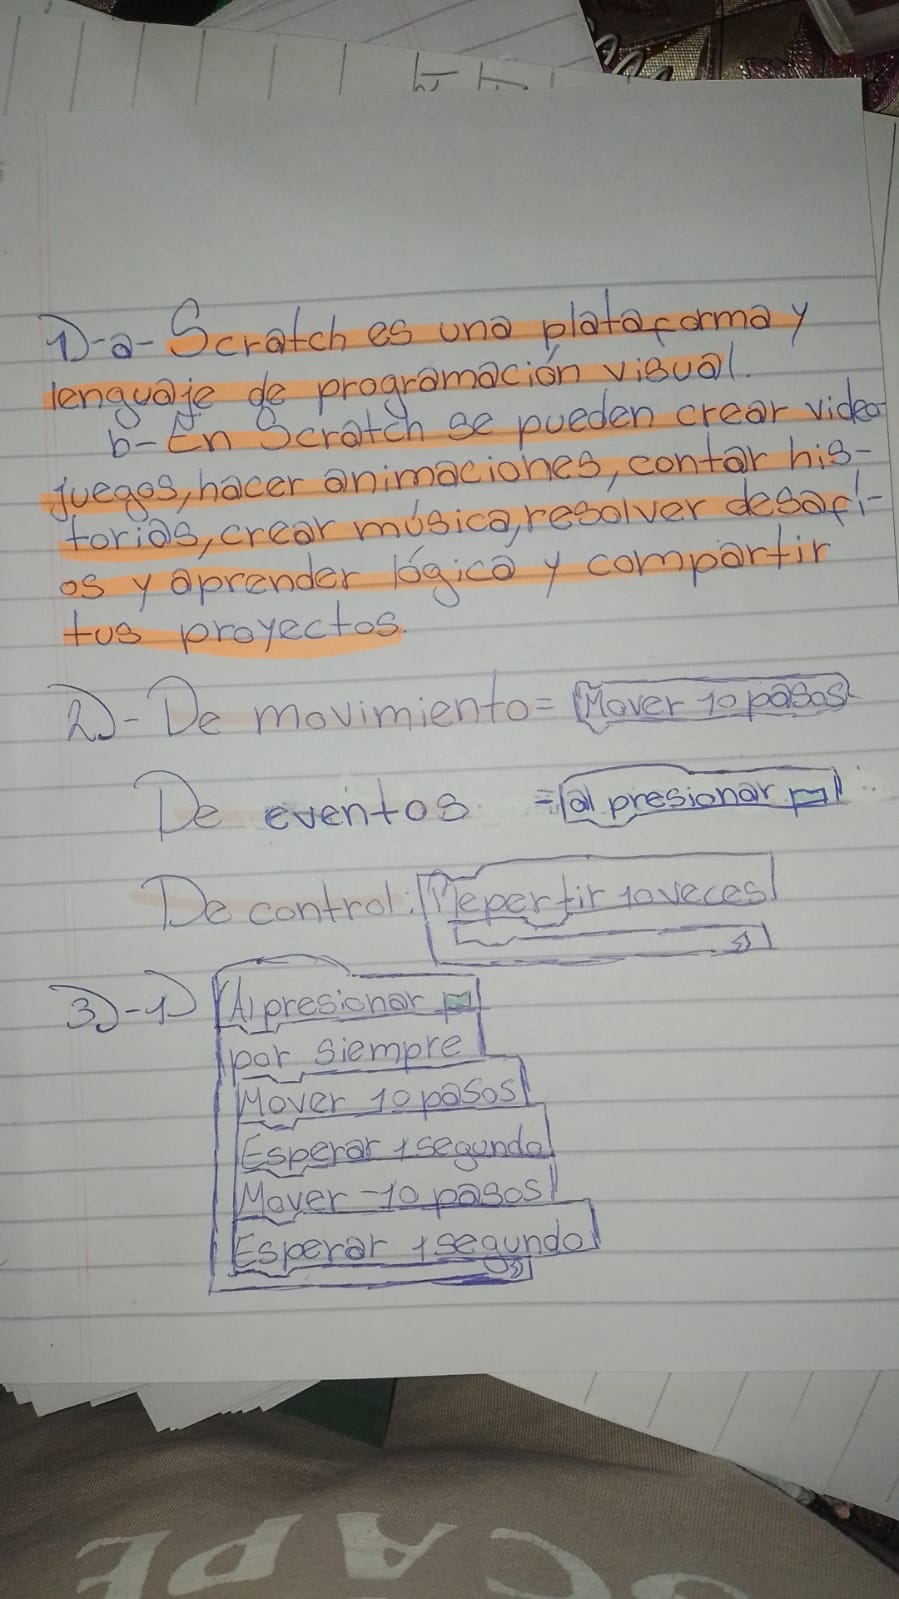 1)-a- Scratch es una plataforma y
lenguaje de programación visual.
b- En Scratch se pueden crear video-
juegos, hacer animaciones, contar his-
torias, crear música, resolver desafí-
os y aprender lógica y compartir
tus proyectos.
2)- De movimiento= Mover 10 pasos
De eventos = al presionar
De control: Repertir 10 veces
3)-1) Al presionar
por siempre
Mover 10 pasos
Esperar 1 segundo
Mover -10 pasos
Esperar 1 segundo
CAPE